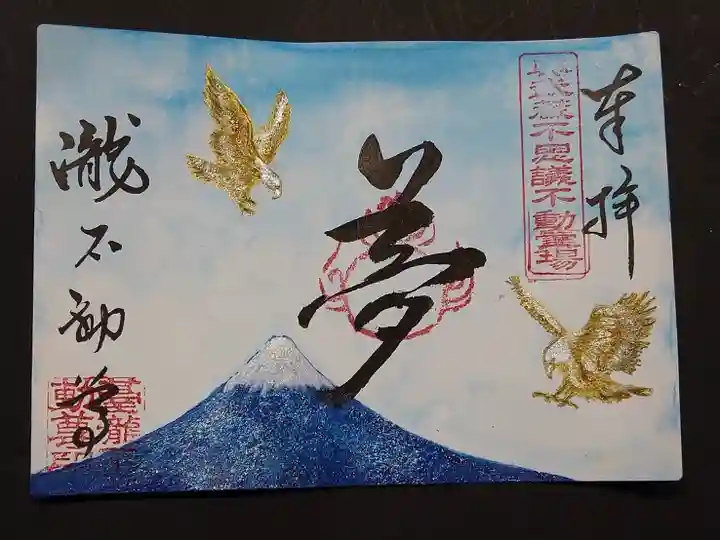 奉拝
不思議不動霊場
夢
瀧不動尊